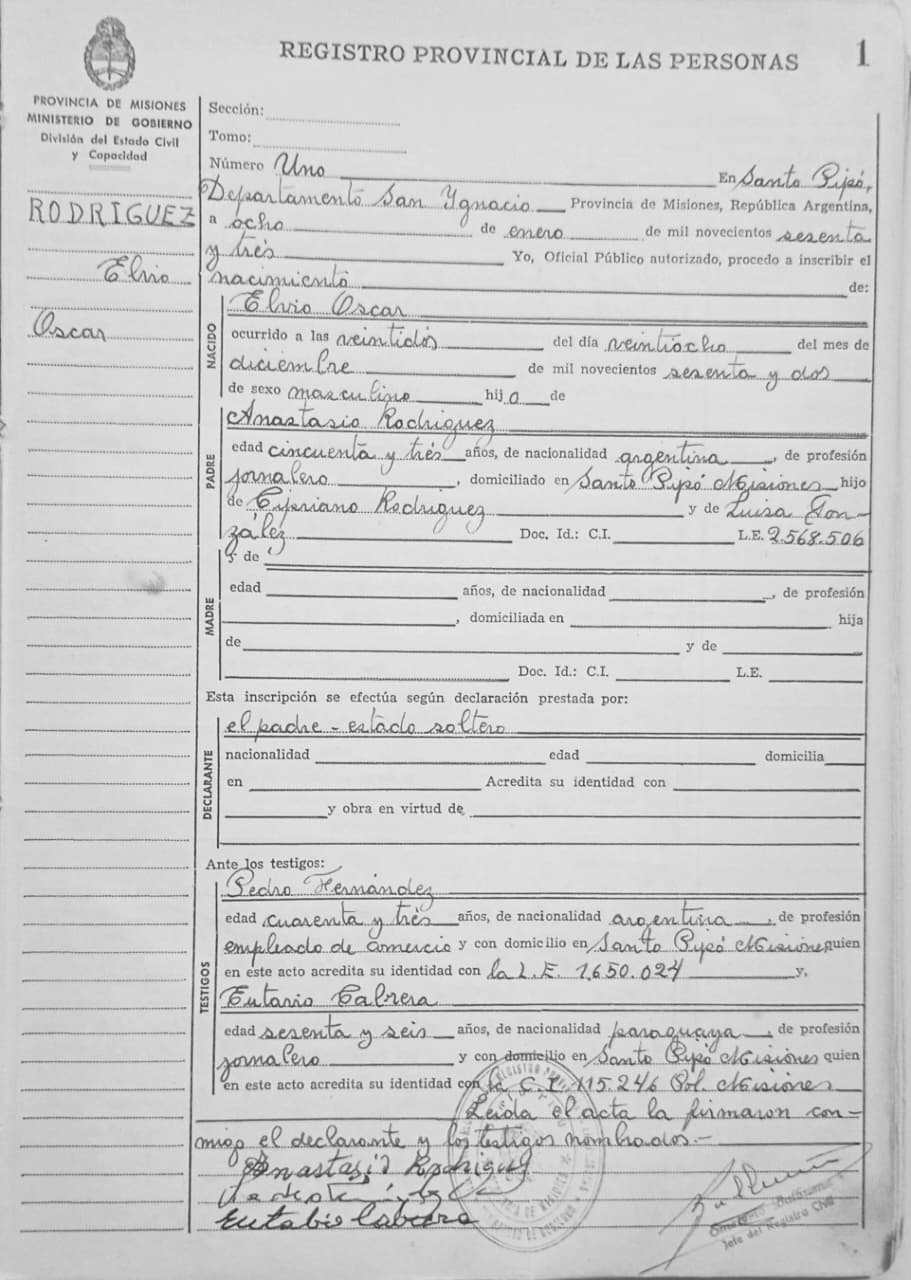 REGISTRO PROVINCIAL DE LAS PERSONAS
1
PROVINCIA DE MISIONES
MINISTERIO DE GOBIERNO
División del Estado Civil
y Capacidad
RODRIGUEZ
Elvio
Oscar
Sección:
Tomo:
Número Uno En Santo Pipó,
Departamento San Ygnacio Provincia de Misiones, República Argentina,
a ocho de enero de mil novecientos sesenta
y trés Yo, Oficial Público autorizado, procedo a inscribir el
nacimiento de:
NACIDO
Elvio Oscar
ocurrido a las veintidós del día veintiocho del mes de
diciembre de mil novecientos sesenta y dos
de sexo masculino hijo de
PADRE
Anastasio Rodriguez
edad cincuenta y trés años, de nacionalidad argentina, de profesión
jornalero, domiciliado en Santo Pipó Misiones hijo
de Cipriano Rodriguez y de Luisa Gon-
zález Doc. Id.: C.I. L.E. 2.568.506
MADRE
y de
edad años, de nacionalidad , de profesión
, domiciliada en hija
de y de
Doc. Id.: C.I. L.E.
Esta inscripción se efectúa según declaración prestada por:
DECLARANTE
el padre - estado soltero
nacionalidad edad domicilia
en Acredita su identidad con
y obra en virtud de
Ante los testigos:
TESTIGOS
Pedro Hernández
edad cuarenta y trés años, de nacionalidad argentina, de profesión
empleado de comercio y con domicilio en Santo Pipó Misiones quien
en este acto acredita su identidad con la L.E. 1.650.024 y,
Eutavio Cabrera
edad sesenta y seis años, de nacionalidad paraguaya, de profesión
jornalero y con domicilio en Santo Pipó Misiones quien
en este acto acredita su identidad con la C.I. 115.246 Pol. Misiones
Leída el acta la firmaron con-
migo el declarante y los testigos nombrados.-
Anastasio Rodriguez
Eutabio Cabrera
Jefe del Registro Civil